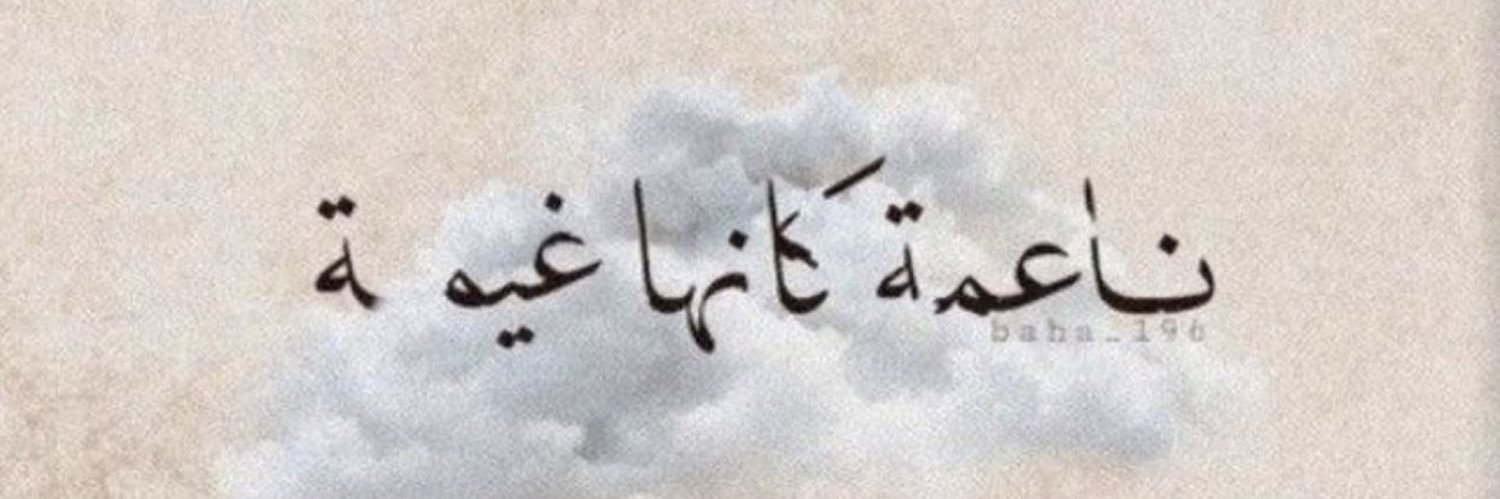 ناعمة كانها غيمة
baha_196